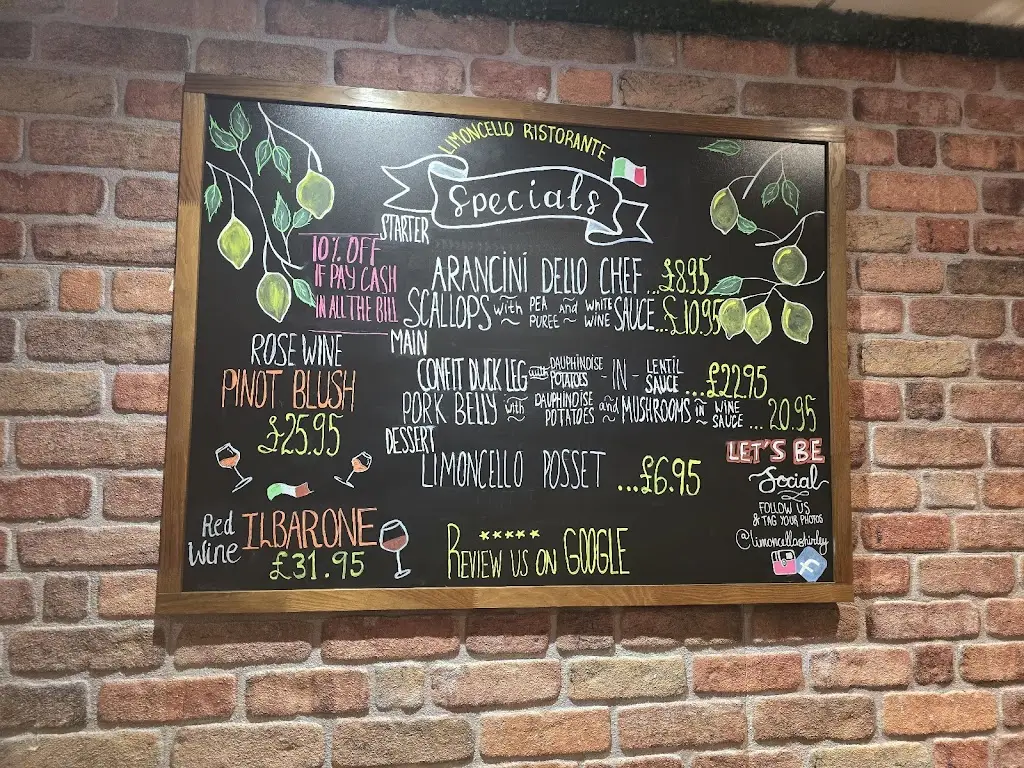 LIMONCELLO RISTORANTE
Specials
STARTER
10% OFF
IF PAY CASH
IN ALL THE BILL
ARANCINI DELLO CHEF...£8.95
SCALLOPS with PEA PUREE and WHITE WINE SAUCE...£10.95
MAIN
CONFIT DUCK LEG with DAUPHINOISE POTATOES - IN - LENTIL SAUCE...£22.95
PORK BELLY with DAUPHINOISE POTATOES and MUSHROOMS in WINE SAUCE... 20.95
DESSERT
LIMONCELLO POSSET ...£6.95
ROSE WINE
PINOT BLUSH
£25.95
Red Wine ILBARONE
£31.95
REVIEW US ON GOOGLE
LET'S BE
Social
FOLLOW US
& TAG YOUR PHOTOS
@limoncelloshirley
f